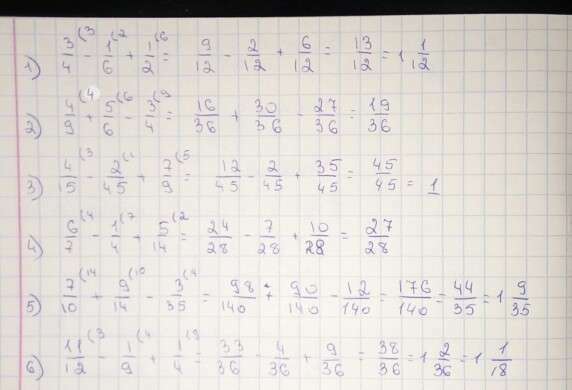 1) 3/4 (3 - 1/6 (2 + 1/2 (6 = 9/12 - 2/12 + 6/12 = 13/12 = 1 1/12
2) 4/9 (4 + 5/6 (6 - 3/4 (9 = 16/36 + 30/36 - 27/36 = 19/36
3) 4/15 (3 - 2/45 (1 + 7/9 (5 = 12/45 - 2/45 + 35/45 = 45/45 = 1
4) 6/7 (4 - 1/4 (7 + 5/14 (2 = 24/28 - 7/28 + 10/28 = 27/28
5) 7/10 (14 + 9/14 (10 - 3/35 (4 = 98/140 + 90/140 - 12/140 = 176/140 = 44/35 = 1 9/35
6) 11/12 (3 - 1/9 (4 + 1/4 (9 = 33/36 - 4/36 + 9/36 = 38/36 = 1 2/36 = 1 1/18